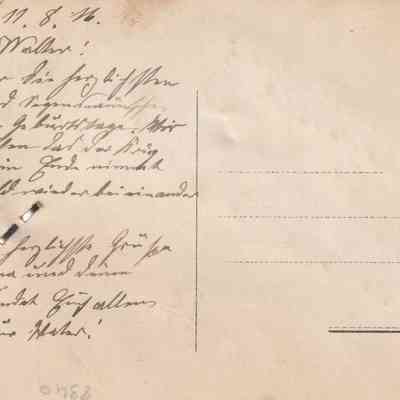 11. 8. 16.
Walter!
die herzlichsten
Segenswünsche
Geburtstage. Wir
das der Krieg
ein Ende nimmt
wieder bei einander
herzlichste Grüße
und deine
sendet Euch allen
Vater!
2340